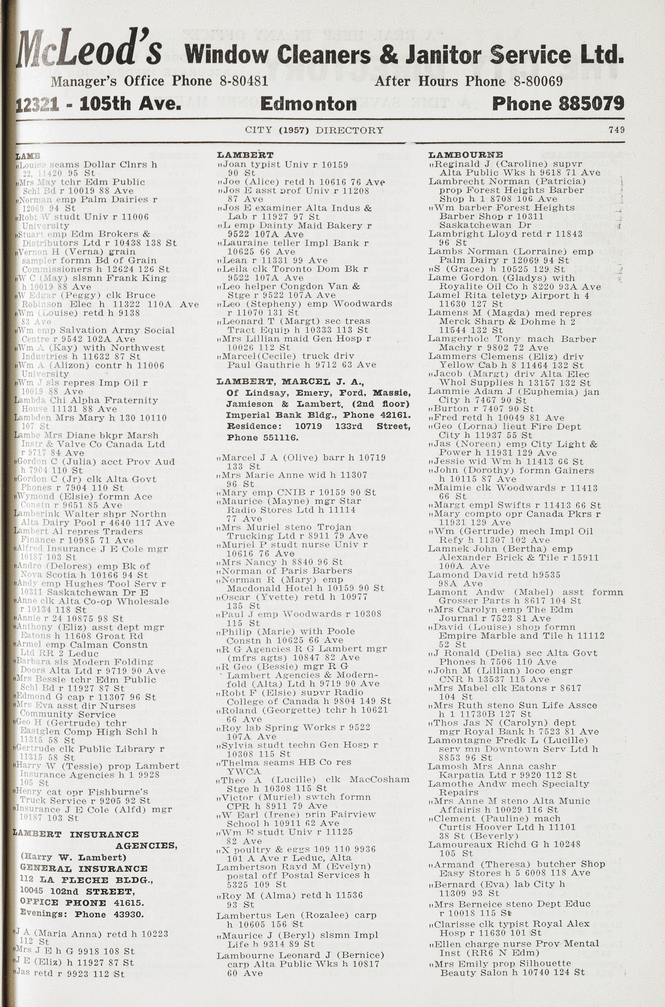 McLeod's Window Cleaners & Janitor Service Ltd.
Manager's Office Phone 8-80481 After Hours Phone 8-80069
12321 - 105th Ave. Edmonton Phone 885079
CITY (1957) DIRECTORY 749
LAMB
„Louise seams Dollar Clnrs h
22, 11420 95 St
„Mrs May tchr Edm Public
Schl Bd r 10019 88 Ave
„Norman emp Palm Dairies r
12069 94 St
„Robt W studt Univ r 11006
University
„Stuart emp Edm Brokers &
Distributors Ltd r 10438 138 St
„Vernon H (Verna) grain
sampler formn Bd of Grain
Commissioners h 12624 126 St
„W C (May) slsmn Frank King
h 10019 88 Ave
„W Edgar (Peggy) clk Bruce
Robinson Elec h 11322 110A Ave
„Wm (Louise) retd h 9138
83 Ave
„Wm emp Salvation Army Social
Centre r 9542 102A Ave
„Wm A (Kay) with Northwest
Industries h 11632 87 St
„Wm A (Alizon) contr h 11006
University
„Wm J sls repres Imp Oil r
10019 88 Ave
Lambda Chi Alpha Fraternity
House 11131 88 Ave
Lambden Mrs Mary h 130 10110
107 St
Lambe Mrs Diane bkpr Marsh
Instr & Valve Co Canada Ltd
r 9717 84 Ave
„Gordon C (Julia) acct Prov Aud
h 7904 110 St
„Gordon C (Jr) clk Alta Govt
Phones r 7904 110 St
„Wymond (Elsie) formn Ace
Constn r 9651 85 Ave
Lamberink Walter shpr Northn
Alta Dairy Pool r 4640 117 Ave
Lambert Al repres Traders
Finance r 10985 71 Ave
„Alfred Insurance J E Cole mgr
10187 103 St
„Andre (Delores) emp Bk of
Nova Scotia h 10166 94 St
„Andy emp Hughes Tool Serv r
10311 Saskatchewan Dr E
„Anne clk Alta Co-op Wholesale
r 10134 118 St
„Annie r 24 10875 98 St
„Anthony (Eliz) asst dept mgr
Eatons h 11608 Groat Rd
„Armel emp Calman Constn
Ltd RR 2 Leduc
„Barbara sls Modern Folding
Doors Alta Ltd r 9719 90 Ave
„Mrs Bessie tchr Edm Public
Schl Bd r 11927 87 St
„Edmond G cap r 11307 96 St
„Mrs Eva asst dir Nurses
Community Service
„Geo H (Gertrude) tchr
Eastglen Comp High Schl h
11315 58 St
„Gertrude clk Public Library r
11315 58 St
„Harry W (Tessie) prop Lambert
Insurance Agencies h 1 9928
105 St
„Henry cat opr Fishburne's
Truck Service r 9205 92 St
„Insurance J E Cole (Alfd) mgr
10187 103 St
LAMBERT INSURANCE
AGENCIES,
(Harry W. Lambert)
GENERAL INSURANCE
112 LA FLECHE BLDG.,
10045 102nd STREET,
OFFICE PHONE 41615.
Evenings: Phone 43930.
„J A (Maria Anna) retd h 10223
112 St
„Mrs J E h G 9918 108 St
„J E (Eliz) h 11927 87 St
„Jas retd r 9923 112 St
LAMBERT
„Joan typist Univ r 10159
90 St
„Joe (Alice) retd h 10616 76 Ave
„Jos E asst prof Univ r 11208
87 Ave
„Jos E examiner Alta Indus &
Lab r 11927 97 St
„L emp Dainty Maid Bakery r
9522 107A Ave
„Lauraine teller Impl Bank r
10625 66 Ave
„Lean r 11331 99 Ave
„Leila clk Toronto Dom Bk r
9522 107A Ave
„Leo helper Congdon Van &
Stge r 9522 107A Ave
„Leo (Stepheny) emp Woodwards
r 11070 131 St
„Leonard T (Margt) sec treas
Tract Equip h 10333 113 St
„Mrs Lillian maid Gen Hosp r
10026 112 St
„Marcel(Cecile) truck driv
Paul Gauthrie h 9712 63 Ave
LAMBERT, MARCEL J. A.,
Of Lindsay, Emery, Ford, Massie,
Jamieson & Lambert, (2nd floor)
Imperial Bank Bldg., Phone 42161.
Residence: 10719 133rd Street,
Phone 551116.
„Marcel J A (Olive) barr h 10719
133 St
„Mrs Marie Anne wid h 11307
96 St
„Mary emp CNIB r 10159 90 St
„Maurice (Mayne) mgr Star
Radio Stores Ltd h 11114
77 Ave
„Mrs Muriel steno Trojan
Trucking Ltd r 8911 79 Ave
„Muriel P studt nurse Univ r
10616 76 Ave
„Mrs Nancy h 8840 96 St
„Norman of Paris Barbers
„Norman R (Mary) emp
Macdonald Hotel h 10159 90 St
„Oscar (Yvette) retd h 10977
135 St
„Paul J emp Woodwards r 10308
115 St
„Philip (Marie) with Poole
Constn h 10625 66 Ave
„R G Agencies R G Lambert mgr
(mfrs agts) 10847 82 Ave
„R Geo (Bessie) mgr R G
Lambert Agencies & Modern-
fold (Alta) Ltd h 9719 90 Ave
„Robt F (Elsie) supvr Radio
College of Canada h 9804 149 St
„Roland (Georgette) tchr h 10621
66 Ave
„Roy lab Spring Works r 9522
107A Ave
„Sylvia studt techn Gen Hosp r
10308 115 St
„Thelma seams HB Co res
YWCA
„Theo A (Lucille) clk MacCosham
Stge h 10308 115 St
„Victor (Muriel) swtch formn
CPR h 8911 79 Ave
„W Earl (Irene) prin Fairview
School h 10911 62 Ave
„Wm E studt Univ r 11125
82 Ave
„X poultry & eggs 109 110 9936
101 A Ave r Leduc, Alta
Lambertson Rayd M (Evelyn)
postal off Postal Services h
5325 109 St
„Roy M (Alma) retd h 11536
93 St
Lambertus Len (Rozalee) carp
h 10605 156 St
„Maurice J (Beryl) slsmn Impl
Life h 9314 89 St
Lambourne Leonard J (Bernice)
carp Alta Public Wks h 10817
60 Ave
LAMBOURNE
„Reginald J (Caroline) supvr
Alta Public Wks h 9618 71 Ave
Lambrecht Norman (Patricia)
prop Forest Heights Barber
Shop h 1 8708 106 Ave
„Wm barber Forest Heights
Barber Shop r 10311
Saskatchewan Dr
Lambright Lloyd retd r 11843
96 St
Lambs Norman (Lorraine) emp
Palm Dairy r 12069 94 St
„S (Grace) h 10525 129 St
Lame Gordon (Gladys) with
Royalite Oil Co h 8220 93A Ave
Lamel Rita teletyp Airport h 4
11630 127 St
Lamens M (Magda) med repres
Merck Sharp & Dohme h 2
11544 132 St
Lamgerholc Tony mach Barber
Machy r 9802 72 Ave
Lammers Clemens (Eliz) driv
Yellow Cab h 8 11464 132 St
„Jacob (Margt) driv Alta Elec
Whol Supplies h 13157 132 St
Lammie Adam J (Euphemia) jan
City h 7467 90 St
„Burton r 7407 90 St
„Fred retd h 10049 81 Ave
„Geo (Lorna) lieut Fire Dept
City h 11937 55 St
„Jas (Noreen) emp City Light &
Power h 11931 129 Ave
„Jessie wid Wm h 11413 66 St
„John (Dorothy) formn Gainers
h 10115 87 Ave
„Maimie clk Woodwards r 11413
66 St
„Margt empl Swifts r 11413 66 St
„Mary compto opr Canada Pkrs r
11931 129 Ave
„Wm (Gertrude) mech Impl Oil
Refy h 11307 102 Ave
Lamnek John (Bertha) emp
Alexander Brick & Tile r 15911
100A Ave
Lamond David retd h9535
98A Ave
Lamont Andw (Mabel) asst formn
Grosser Parts h 8617 104 St
„Mrs Carolyn emp The Edm
Journal r 7523 81 Ave
„David (Louise) shop formn
Empire Marble and Tile h 11112
52 St
„J Ronald (Delia) sec Alta Govt
Phones h 7506 110 Ave
„John M (Lillian) loco engr
CNR h 13537 115 Ave
„Mrs Mabel clk Eatons r 8617
104 St
„Mrs Ruth steno Sun Life Assce
h 1 11730B 127 St
„Thos Jas N (Carolyn) dept
mgr Royal Bank h 7523 81 Ave
Lamontagne Fredk L (Lucille)
serv mn Downtown Serv Ltd h
8853 96 St
Lamosh Mrs Anna cashr
Karpatia Ltd r 9920 112 St
Lamothe Andw mech Specialty
Repairs
„Mrs Anne M steno Alta Munic
Affairs h 10029 116 St
„Clement (Pauline) mach
Curtis Hoover Ltd h 11101
38 St (Beverly)
Lamoureaux Richd G h 10248
105 St
„Armand (Theresa) butcher Shop
Easy Stores h 5 6008 118 Ave
„Bernard (Eva) lab City h
11309 93 St
„Mrs Berneice steno Dept Educ
r 10018 115 St
„Clarisse clk typist Royal Alex
Hosp r 11630 101 St
„Ellen charge nurse Prov Mental
Inst (RR6 N Edm)
„Mrs Emily prop Silhouette
Beauty Salon h 10740 124 St